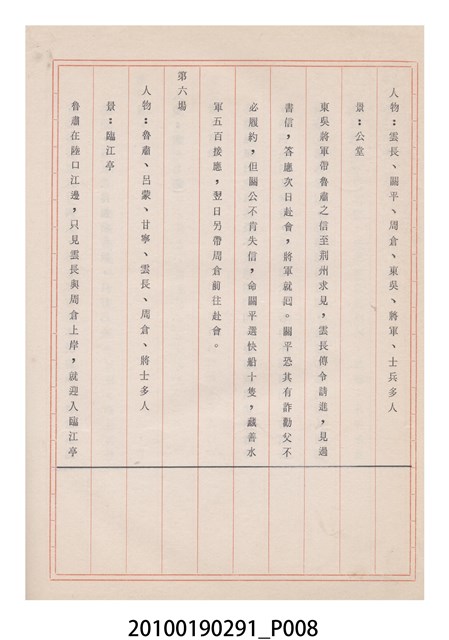 人物：雲長、關平、周倉、東吳、將軍、士兵多人
景：公堂
東吳將軍帶魯肅之信至荊州求見，雲長傳令請進，見過
書信，答應次日赴會，將軍就囘。關平恐其有詐勸父不
必履約，但關公不肯失信，命關平選快船十隻，藏善水
軍五百接應，翌日另帶周倉前往赴會。
第六場
人物：魯肅、呂蒙、甘寧、雲長、周倉、將士多人
景：臨江亭
魯肅在陸口江邊，只見雲長與周倉上岸，就迎入臨江亭
20100190291_P008